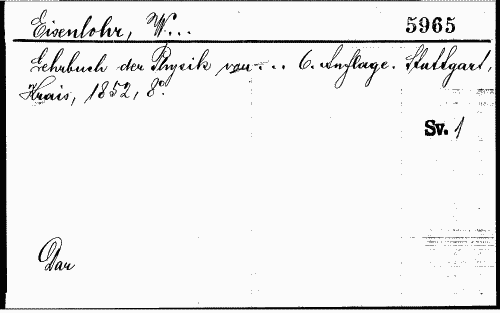 Eisenlohr, W... 5965
Lehrbuch der Physik von... 6. Auflage. Stuttgart,
Krais, 1852, 8º.
Sv. 1
Dar